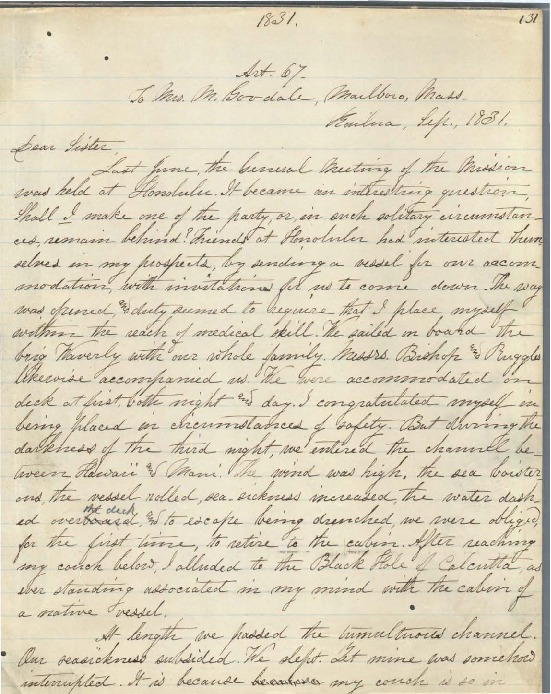 1831.
131
Art. 67.
To Mrs. M. Goodale, Marlboro, Mass.
Sep., 1831.
Dear Sister,
Last June, the General Meeting of the Mission
was held at Honolulu. It became an interesting question,
Shall I make one of the party, or, in such solitary circumstan-
ces, remain behind? Friends at Honolulu had interested them
selves in my prospects, by sending a vessel for our accom-
modation, with invitations for us to come down. The way
was opened, and duty seemed to require that I place myself
within the reach of medical skill. We sailed on board the
brig Waverly with our whole family. Messrs. Bishop and Ruggles
likewise accompanied us. We were accommodated on
deck at first, both night and day. I congratulated myself in
being placed in circumstances of safety. But during the
darkness of the third night, we entered the channel be-
tween Hawaii and Maui. The wind was high, the sea boister
ous, the vessel rolled, sea-sickness increased, the water dash-
the deck
ed over board, and to escape being drenched, we were obliged,
for the first time, to retire to the cabin. After reaching
my couch below, I alluded to the Black Hole of Calcutta, as
ever standing associated in my mind with the cabin of
a native vessel.
At length we passed the tumultuous channel.
Our seasickness subsided. We slept. Yet mine was somehow
interrupted. It is because because my couch is so in